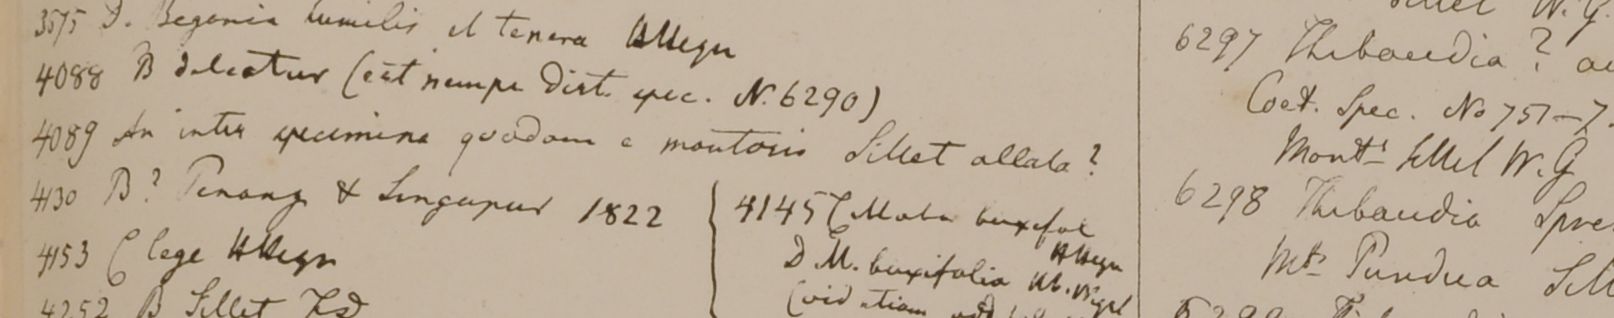 3575 D. Begonia humilis et tenera HMegn
4088 B deleatur (est nempe dist. spec. N. 6290)
4089 An inter specimina quodam e montosis Sillet allata?
4130 B? Penang & Singapur 1822
4153 C lege
4252 B Sillet
4145 C Maba buxifol
D M. buxifolia Hb.
(vid etiam
Sillet W. G.
6297 Thibaudia?
Cat. Spec. No 757-7
Montt Sillet W. G
6298 Thibaudia Spre
Mts Pundua Sill
6299